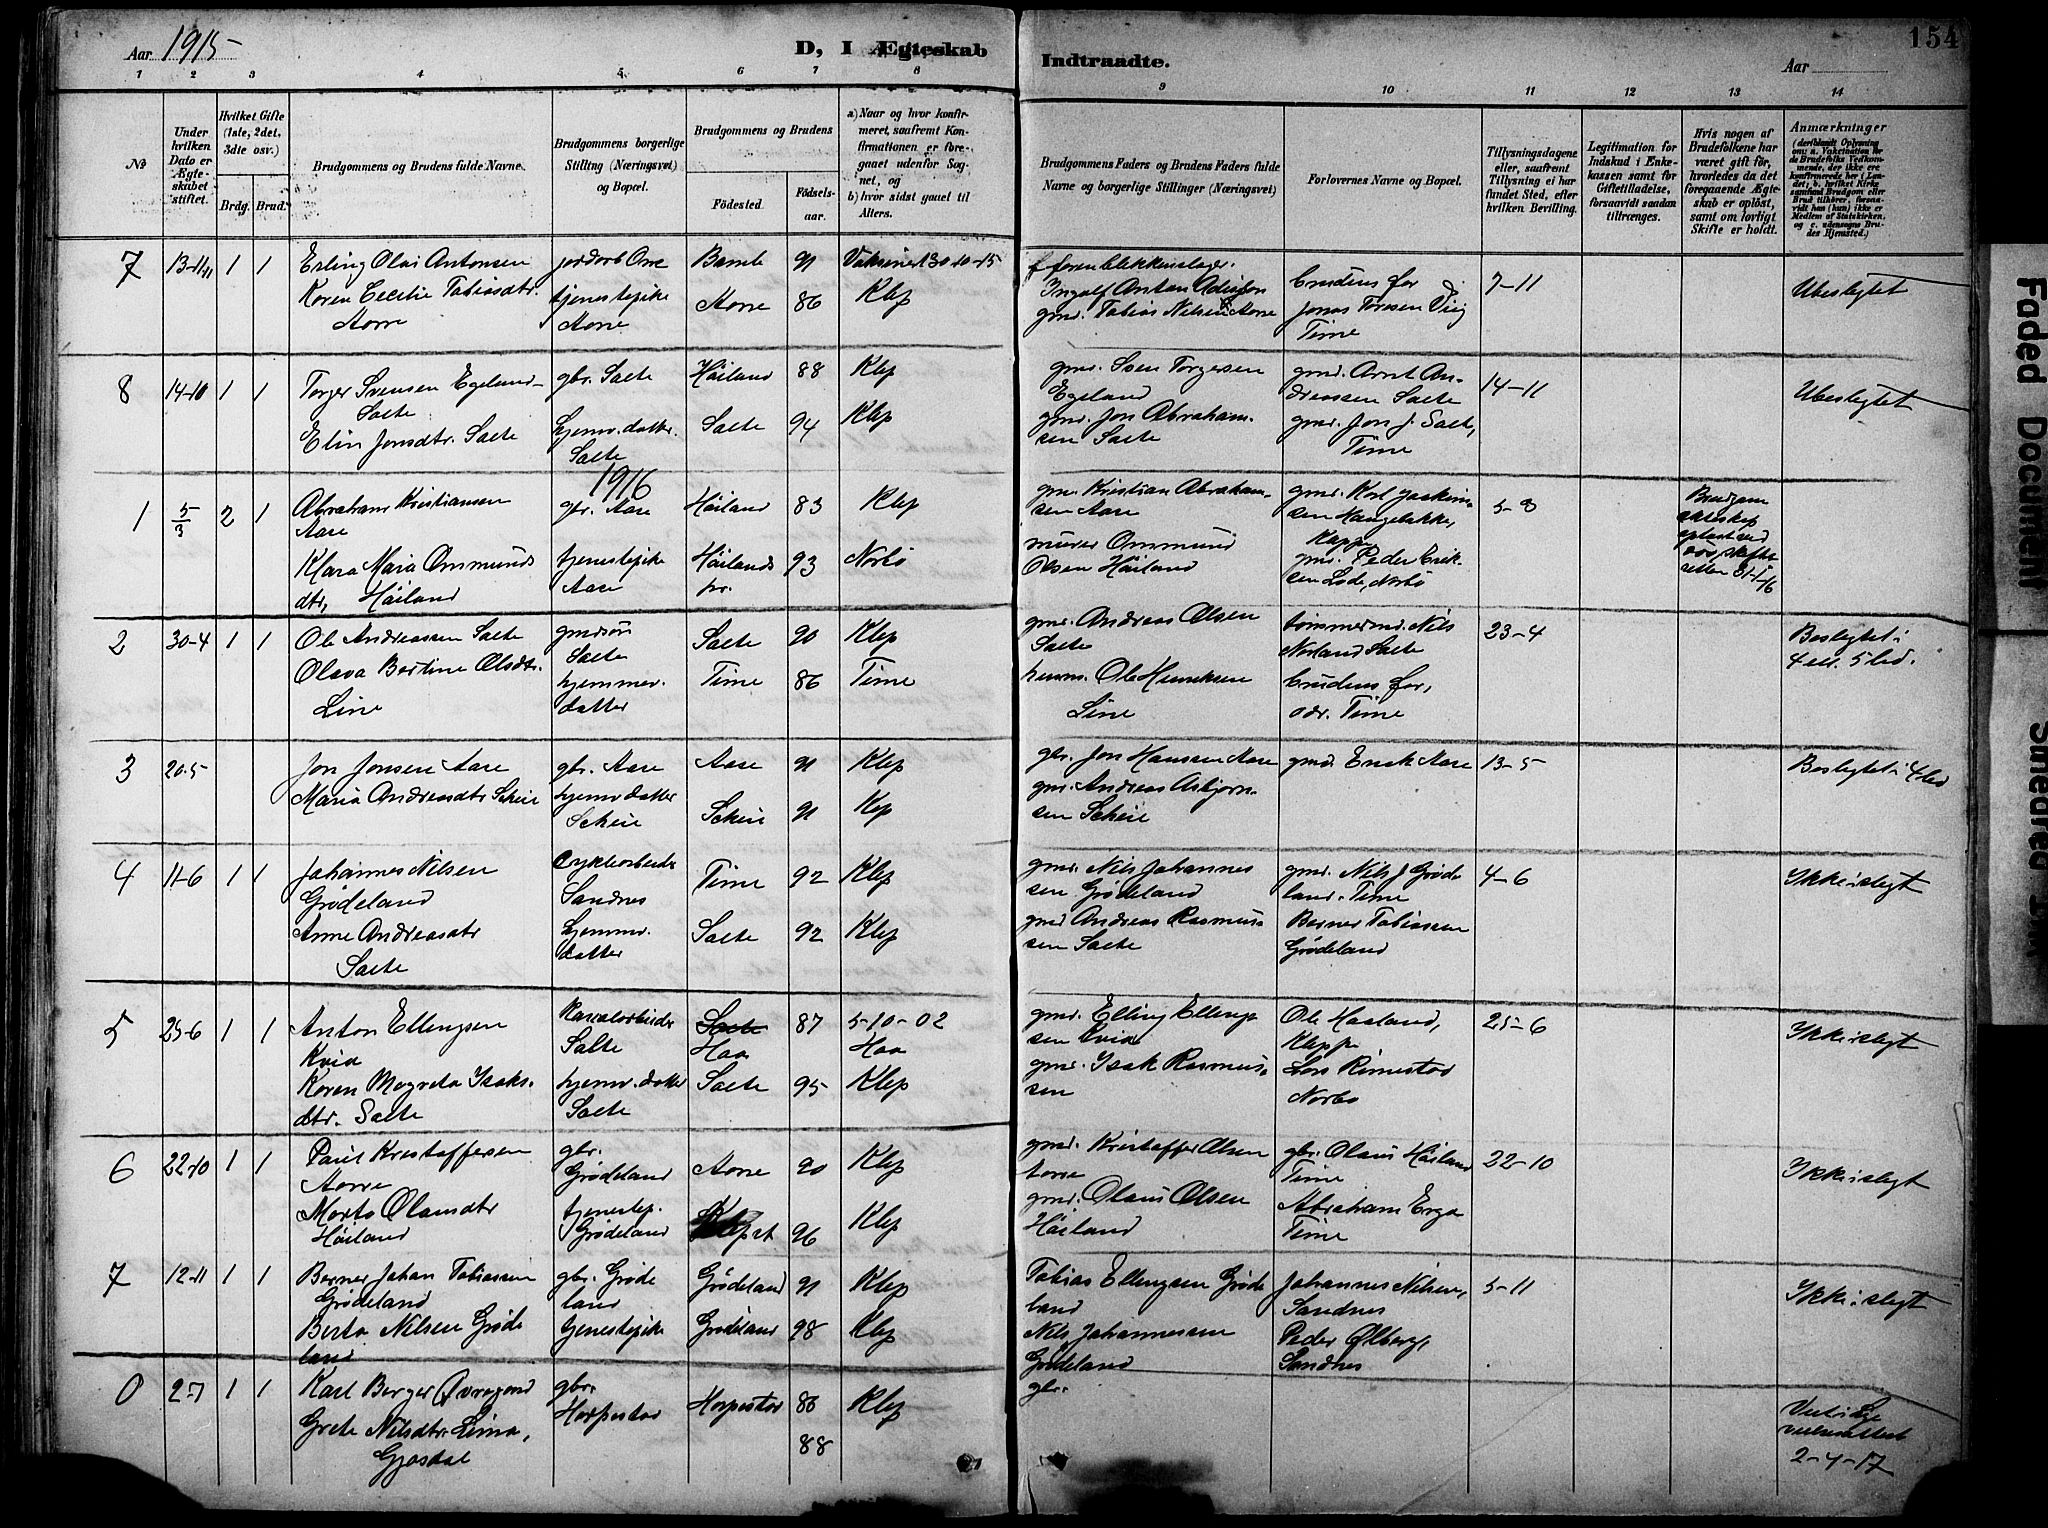 Aar 1915
D, I Ægteskab
Indtraadte.
Aar
154
1 2 3 4 5 6 7 8 9 10 11 12 13 14
No
Under hvilken Dato er Ægteskabet stiftet.
Hvilket Gifte (1ste, 2det, 3die osv.)
Brdg. Brud.
Brudgommens og Brudens fulde Navne.
Brudgommens borgerlige Stilling (Næringsvei) og Bopæl.
Brudgommens og Brudens
Fødested. Fødselsaar.
a) Naar og hvor konfirmeret, saafremt Konfirmationen er foregaaet udenfor Sognet, og
b) hvor sidst gaaet til Alters.
Brudgommens Faders og Brudens Faders fulde Navne og borgerlige Stillinger (Næringsvei)
Forlovernes Navne og Bopæl.
Tillysningsdagene eller, saafremt Tillysning ei har fundet Sted, efter hvilken Bevilling.
Legitimation for Indskud i Enkekassen samt for Giftetilladelse, forsaavidt saadan tiltrænges.
Hvis nogen af Brudefolkene har været gift før, hvorledes da det foregaaende Ægteskab er opløst, samt om lovligt Skifte er holdt.
Anmærkninger
7 13-11 1 1 Erling Olai Antonsen
Karen Cecilie Tobiasdtr.
Aorre
jordarb Orre
tjenestepike
Aorre
Bamle 91
Aorre 86
Vaksinert 30-10-15
Klep
f foren blikkenslager.
Ingolf Anton
gmd. Tobias Nilsen Aorre
brudens far
Jonas Toresen Vig
Time
7-11
Ubeslegtet
8 14-10 1 1 Torger Svensen Egeland-
Salte
Elin Jonsdtr. Salte
gbr. Salte
hjemv. datter.
Salte
Høiland 88 Klep
Salte 94 Klep
gmd. Sven Torgersen
Egeland
gmd. Jon Abraham-
sen Salte
gmd. Arnt An-
dreassen Salte
gmd. Jon J. Salte,
Time
14-11
Ubeslegtet
1916
1 5/3 2 1 Abraham Kristiansen
Aase
Klara Maria Ommunds
dtr, Høiland
gbr. Aase
tjenestepike
Aase
Høiland 83 Klep
Høilands 93 Nærbø
pr.
gmd. Kristian Abraham-
sen Aase
murer Ommund
Olsen Høiland
gmd. Karl Joakim-
sen Haugebakke,
Kleppe
gmd. Peder Erik-
sen Lode, Nærbø
5-3
Brudgom
ekteskap
opløst ved
2 30-4 1 1 Ole Andreassen Salte
Olava Bertine Olsdtr.
Line
gmdsøn
Salte
hjemmev.
datter
Salte 90 Klep
Time 86 Time
gmd. Andreas Olsen
Salte
husm. Ole Henriksen
Line
tømmermd. Nils
Norland Salte
brudens far,
adr. Time
23-4
Beslegtet i
4 el. 5 led.
3 20-5 Jon Jonsen Aase
Maria Andreasdtr Skeie
gbr. Aase
hjemv datter
Skeie
Aase 91 Klep
Skeie 91 Kep
gbr. Jon Hanssen Aase
gmd. Andreas Asbjørn-
sen Skeie
gmd. Enok Aase
13-5
Beslegtet i 4 led
4 11-6 1 1 Johannes Nilsen
Grødeland
Anne Andreasdtr
Salte
Cyklearbeider
Sandnes
hjemmv.
datter
Time 92 Klep
Salte 92 Klep
gmd. Nils Johannes
sen Grødeland
gmd Andreas Rasmus-
sen Salte
gmd. Nils J Grøde
land. Time
Berner Tobiassen
Grødeland
4-6
Ikke i slegt
5 25-6 1 1 Anton Ellingsen
Kvia
Karen Magreta Isaks-
dtr. Salte
Kanalarbeider
Salte
hjemv. datter
Salte
Salte 87 5-10-02
Haa Haa
Salte 95 Klep
gmd. Elling Elling-
sen Kvia
gmd. Isak Rasmus-
sen
Ole Haaland,
Kleppe
Lars Rimestad
Nærbø
25-6
Ikke i slegt
6 22-10 1 1 Paul Kristoffersen
Aorre
Marta Olausdtr
Høiland
gbr.
Grødeland
tjenestep.
Grødeland
Aorre 90 Klep
96 Klep
gmd. Kristoffer Olsen
Aorre
gmd. Olaus Olsen
Høiland
gbr. Olaus Høiland
Time
Abraham Erga
Time
22-10
Ikke i slegt
7 12-11 1 1 Berner Johan Tobiassen
Grødeland
Berta Nilsen Grøde
land
gbr. Grøde
land
tjenestepike
Grødeland 91 Klep
Grødeland 98 Klep
Tobias Ellingsen Grøde
land
Nils Johannessen
Grødeland
Johannes Nilsen,
Sandnes
Peder Ølberg,
Sandnes
5-11
Ikke i slegt
0 2-7 1 1 Karl Berger
Grete Nilsdtr. Lima,
Gjesdal
gbr.
Horpestad
Horpestad 86 Klep
88
gbr.
2-4-17
Faded Document
Smeared Ink